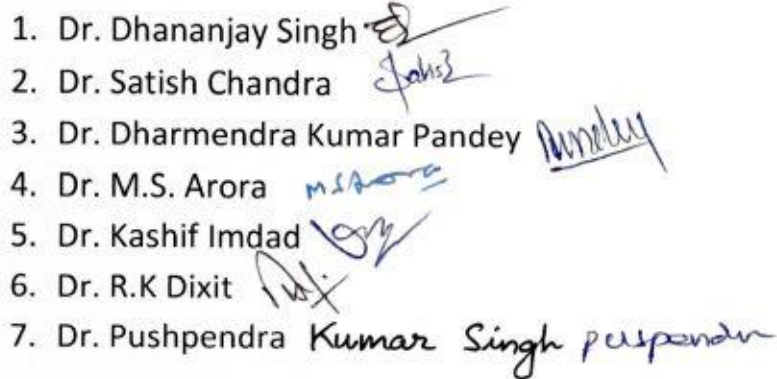 1. Dr. Dhananjay Singh
2. Dr. Satish Chandra
3. Dr. Dharmendra Kumar Pandey
4. Dr. M.S. Arora MSArora
5. Dr. Kashif Imdad
6. Dr. R.K Dixit
7. Dr. Pushpendra Kumar Singh